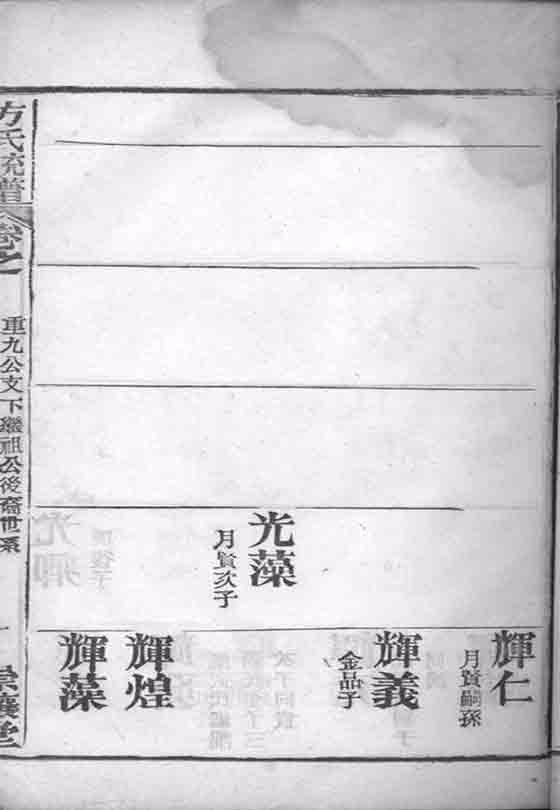 光藻
月賢次子
輝仁
月賢嗣孫
輝義
金品子
輝煌
輝藻
方氏統譜
卷之
重九公支下繼祖公後裔世系